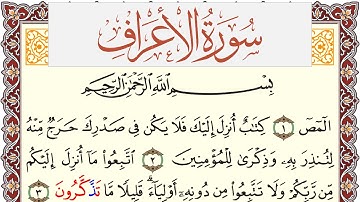 سُورَةُ الأَعْرَافِ
بِسْمِ اللَّهِ الرَّحْمَٰنِ الرَّحِيمِ
الٓمٓصٓ ١ كِتَٰبٌ أُنزِلَ إِلَيْكَ فَلَا يَكُن فِى صَدْرِكَ حَرَجٌ مِّنْهُ
لِتُنذِرَ بِهِۦ وَذِكْرَىٰ لِلْمُؤْمِنِينَ ٢ ٱتَّبِعُوا۟ مَآ أُنزِلَ إِلَيْكُم
مِّن رَّبِّكُمْ وَلَا تَتَّبِعُوا۟ مِن دُونِهِۦٓ أَوْلِيَآءَ ۗ قَلِيلًا مَّا تَذَكَّرُونَ ٣